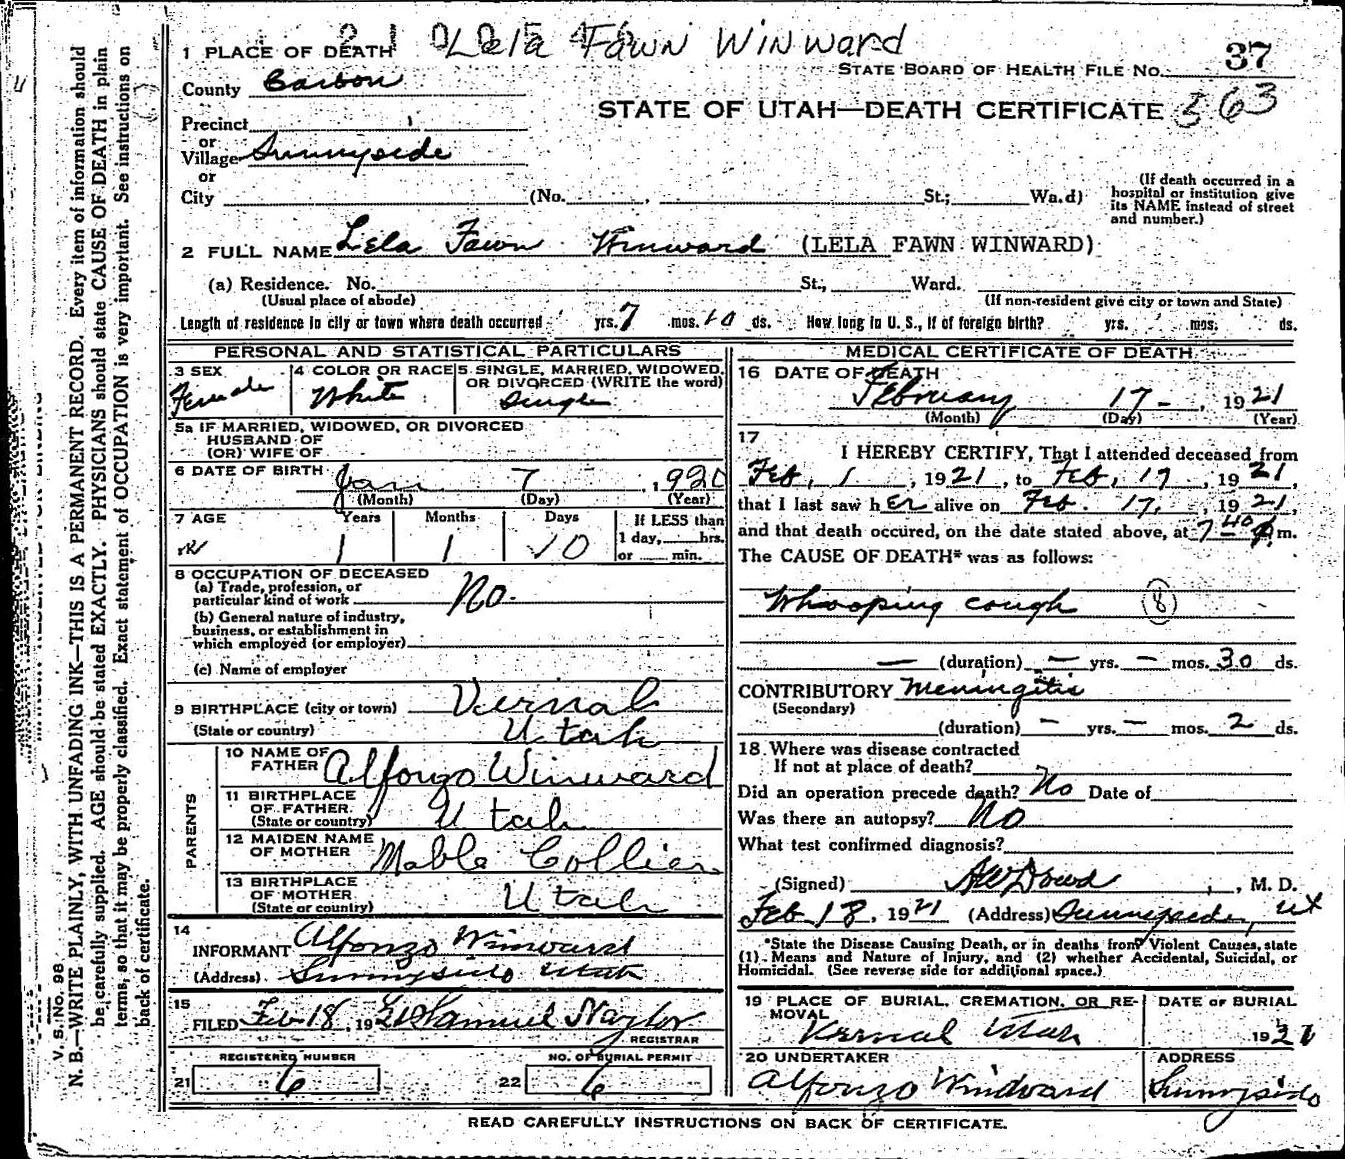 Lela Fawn Winward
1 PLACE OF DEATH
STATE BOARD OF HEALTH FILE No. 37
County Carbon
STATE OF UTAH—DEATH CERTIFICATE 363
Precinct
or
Village Sunnyside
or
City (No. , St.; Wa.d)
(If death occurred in a hospital or institution give its NAME instead of street and number.)
2 FULL NAME Lela Fawn Winward (LELA FAWN WINWARD)
(a) Residence. No. St., Ward.
(Usual place of abode) (If non-resident give city or town and State)
Length of residence in city or town where death occurred yrs. 7 mos. 10 ds. How long in U. S., if of foreign birth? yrs. mos. ds.
PERSONAL AND STATISTICAL PARTICULARS
3 SEX
Female
4 COLOR OR RACE
White
5 SINGLE, MARRIED, WIDOWED, OR DIVORCED (WRITE the word)
Single
5a IF MARRIED, WIDOWED, OR DIVORCED
HUSBAND OF
(OR) WIFE OF
6 DATE OF BIRTH Jan 7, 1920
(Month) (Day) (Year)
7 AGE Years Months Days
1 1 10
If LESS than
1 day, hrs.
or min.
8 OCCUPATION OF DECEASED
(a) Trade, profession, or
particular kind of work No.
(b) General nature of industry,
business, or establishment in
which employed (or employer)
(c) Name of employer
9 BIRTHPLACE (city or town) Vernal
(State or country) Utah
PARENTS
10 NAME OF FATHER Alfonzo Winward
11 BIRTHPLACE
OF FATHER
(State or country) Utah
12 MAIDEN NAME
OF MOTHER Mable Collier
13 BIRTHPLACE
OF MOTHER
(State or country) Utah
14
INFORMANT Alfonzo Winward
(Address) Sunnyside Utah
15
FILED Feb 18, 1921 Samuel Naylor
REGISTRAR
REGISTERED NUMBER
21 6
NO. OF BURIAL PERMIT
22 6
MEDICAL CERTIFICATE OF DEATH
16 DATE OF DEATH
February 17 - , 1921
(Month) (Day) (Year)
17
I HEREBY CERTIFY, That I attended deceased from
Feb. 1, 1921, to Feb. 17, 1921,
that I last saw her alive on Feb. 17, 1921,
and that death occured, on the date stated above, at 7 40 p.m.
The CAUSE OF DEATH* was as follows:
Whooping cough (8)
— (duration) — yrs. — mos. 30 ds.
CONTRIBUTORY Meningitis
(Secondary)
(duration) — yrs. — mos. 2 ds.
18. Where was disease contracted
If not at place of death?
Did an operation precede death? No Date of
Was there an autopsy? No
What test confirmed diagnosis?
(Signed) AW Dowd, M. D.
Feb 18, 1921 (Address) Sunnyside, Ut
*State the Disease Causing Death, or in deaths from Violent Causes, state
(1) Means and Nature of Injury, and (2) whether Accidental, Suicidal, or
Homicidal. (See reverse side for additional space.)
19 PLACE OF BURIAL, CREMATION, OR REMOVAL
Vernal Utah
DATE OF BURIAL
1921
20 UNDERTAKER
Alfonzo Windward
ADDRESS
Sunnyside
READ CAREFULLY INSTRUCTIONS ON BACK OF CERTIFICATE.
V. S. (No. 98
N. B.—WRITE PLAINLY, WITH UNFADING INK—THIS IS A PERMANENT RECORD. Every item of information should
be carefully supplied. AGE should be stated EXACTLY. PHYSICIANS should state CAUSE OF DEATH in plain
terms, so that it may be properly classified. Exact statement of OCCUPATION is very important. See instructions on
back of certificate.